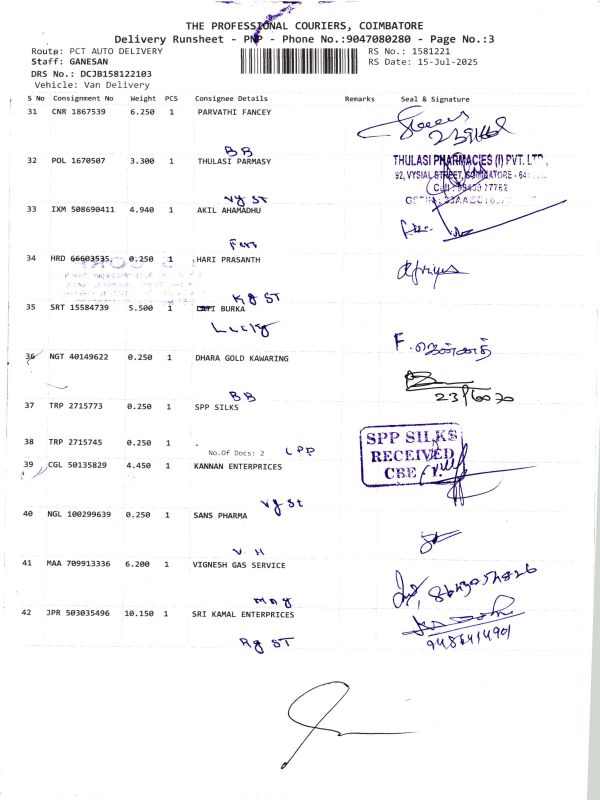 THE PROFESSIONAL COURIERS, COIMBATORE
Delivery Runsheet - PNP - Phone No.:9047080280 - Page No.:3
Route: PCT AUTO DELIVERY RS No.: 1581221
Staff: GANESAN RS Date: 15-Jul-2025
DRS No.: DCJB158122103
Vehicle: Van Delivery
S No Consignment No Weight PCS Consignee Details Remarks Seal & Signature
31 CNR 1867539 6.250 1 PARVATHI FANCEY
BB
32 POL 1670507 3.300 1 THULASI PARMASY
THULASI PHARMACIES (I) PVT. LTD.,
92, VYSIAL STREET, COIMBATORE - 641
Vy St
33 IXM 508690411 4.940 1 AKIL AHAMADHU
34 HRD 66603535 0.250 1 HARI PRASANTH
Kg ST
35 SRT 15584739 5.500 1 BURKA
F. ஜென்னத்
36 NGT 40149622 0.250 1 DHARA GOLD KAWARING
BB
37 TRP 2715773 0.250 1 SPP SILKS
38 TRP 2715745 0.250 1 .
No.Of Docs: 2
SPP SILKS
RECEIVED
CBE - 1.
39 CGL 50135829 4.450 1 KANNAN ENTERPRICES
Vy St
40 NGL 100299639 0.250 1 SANS PHARMA
V H
41 MAA 709913336 6.200 1 VIGNESH GAS SERVICE
42 JPR 503035496 10.150 1 SRI KAMAL ENTERPRICES
Rg ST